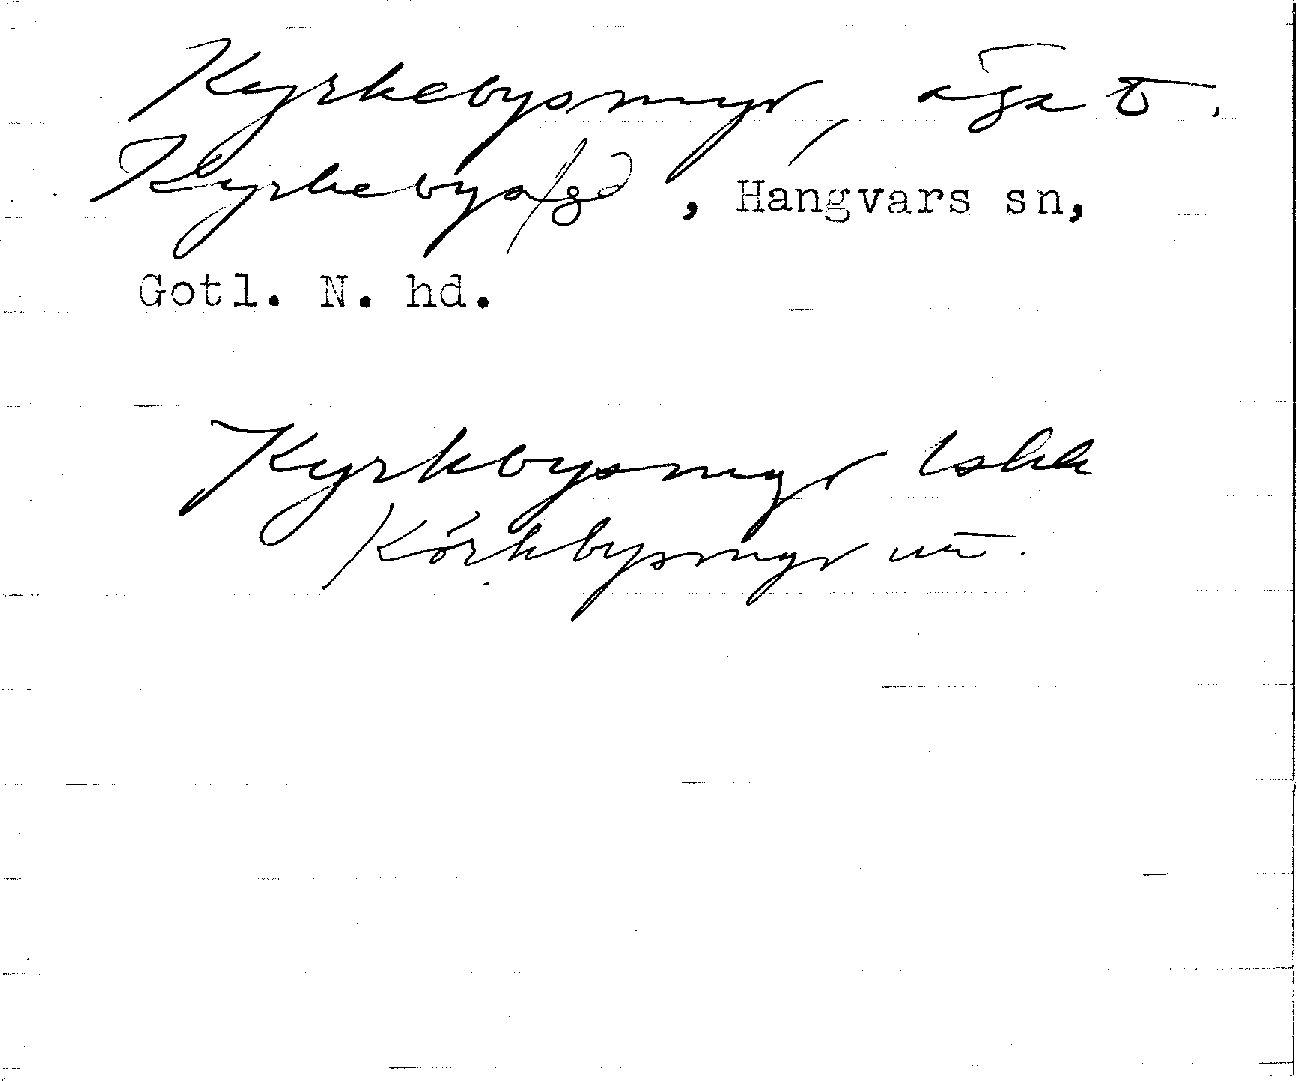 Kyrkebysmyr, äga t.
Kyrkebys gd, Hangvars sn,
Gotl. N. hd.
Kyrkbysmyr
Körkbysmyr